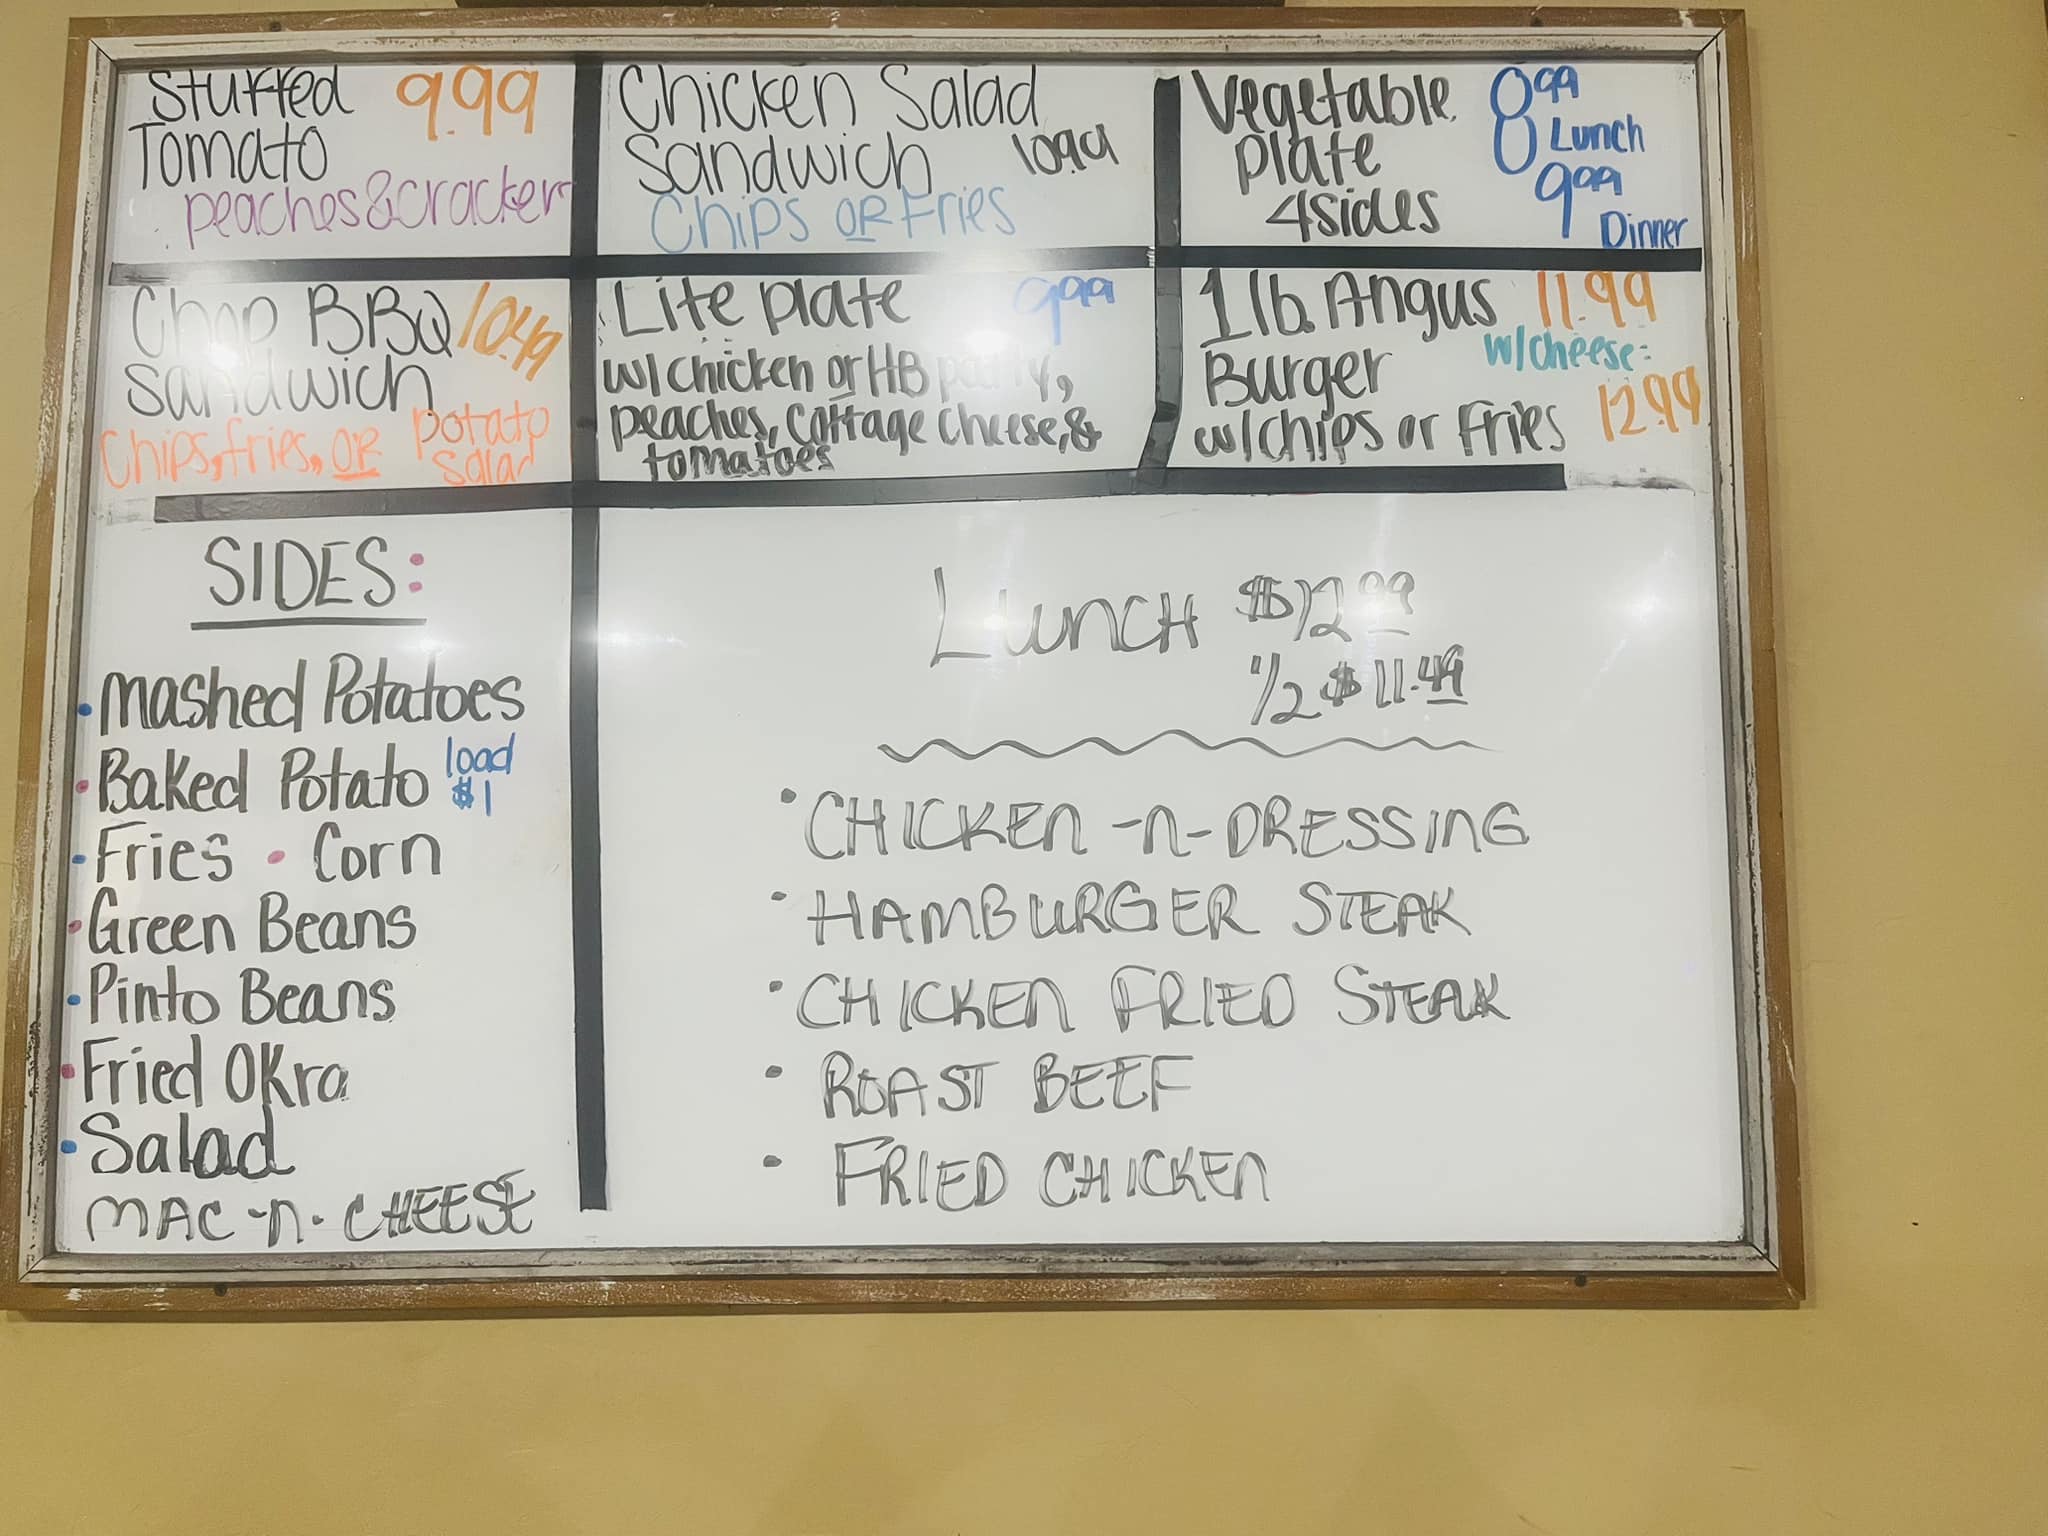 Stuffed 9.99
Tomato
peaches & cracker
Chicken Salad
Sandwich 10.99
Chips OR Fries
Vegetable 8.99
Plate Lunch
4 sides 9.99
Dinner
Chop BBQ 10.49
Sandwich
Chips, fries, OR potato
salad
Lite plate 9.99
w/ chicken or HB patty,
peaches, Cottage Cheese, &
tomatoes
1 lb. Angus 11.99
Burger w/cheese:
w/chips or Fries 12.99
SIDES:
• Mashed Potatoes
• Baked Potato load
$1
• Fries • Corn
• Green Beans
• Pinto Beans
• Fried Okra
• Salad
MAC -n- CHEESE
LUNCH $12.99
1/2 $11.49
• CHICKEN -n- DRESSING
• HAMBURGER STEAK
• CHICKEN FRIED STEAK
• ROAST BEEF
• FRIED CHICKEN